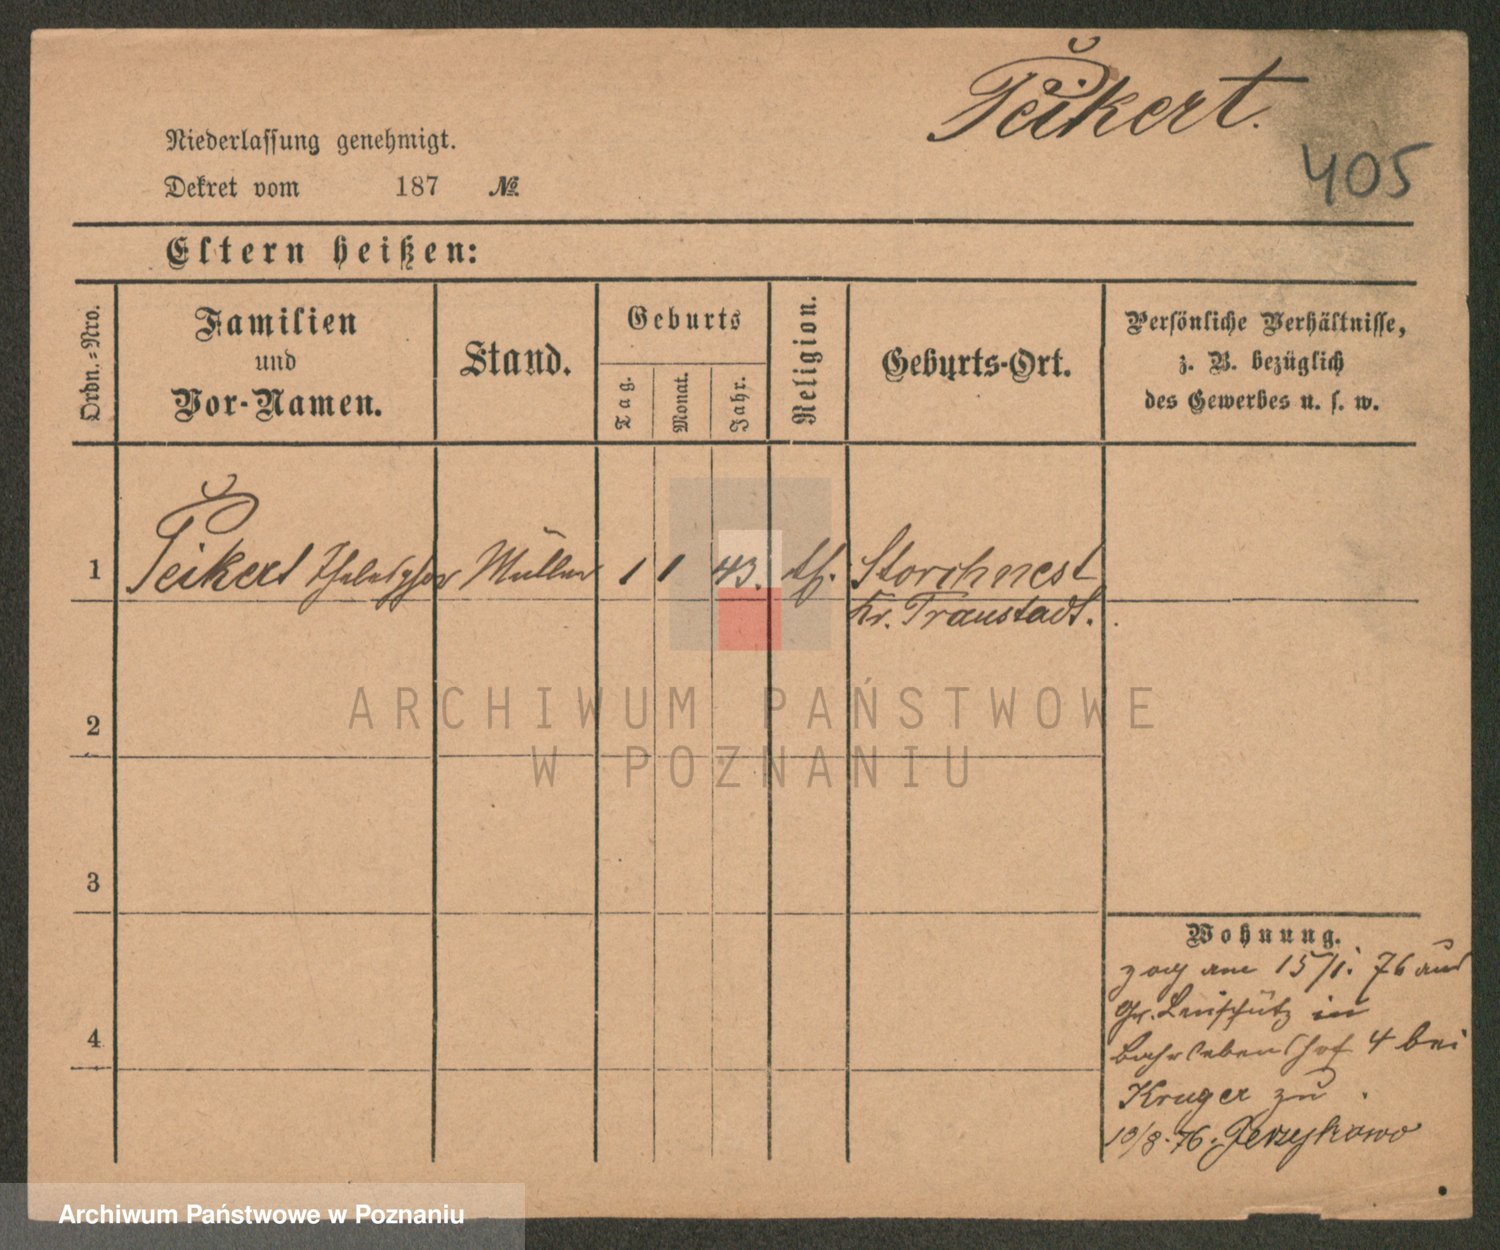 Teikert.
405
Niederlassung genehmigt.
Dekret vom 187 №
Eltern heißen:
Ordn.=Nro.
Familien
und
Vor-Namen.
Stand.
Geburts
Tag.
Monat.
Jahr.
Religion.
Geburts-Ort.
Persönliche Verhältnisse,
z. B. bezüglich
des Gewerbes u. s. w.
1 Teikert Müller 1 1 43. Storchnest
Kr. Fraustadt.
2
3
4
Wohnung.
zog am 15/1. 76 aus
Gr. in
4 bei
Kruger zu
19/8. 76. Jerzykowo
ARCHIWUM PAŃSTWOWE
W POZNANIU
Archiwum Państwowe w Poznaniu